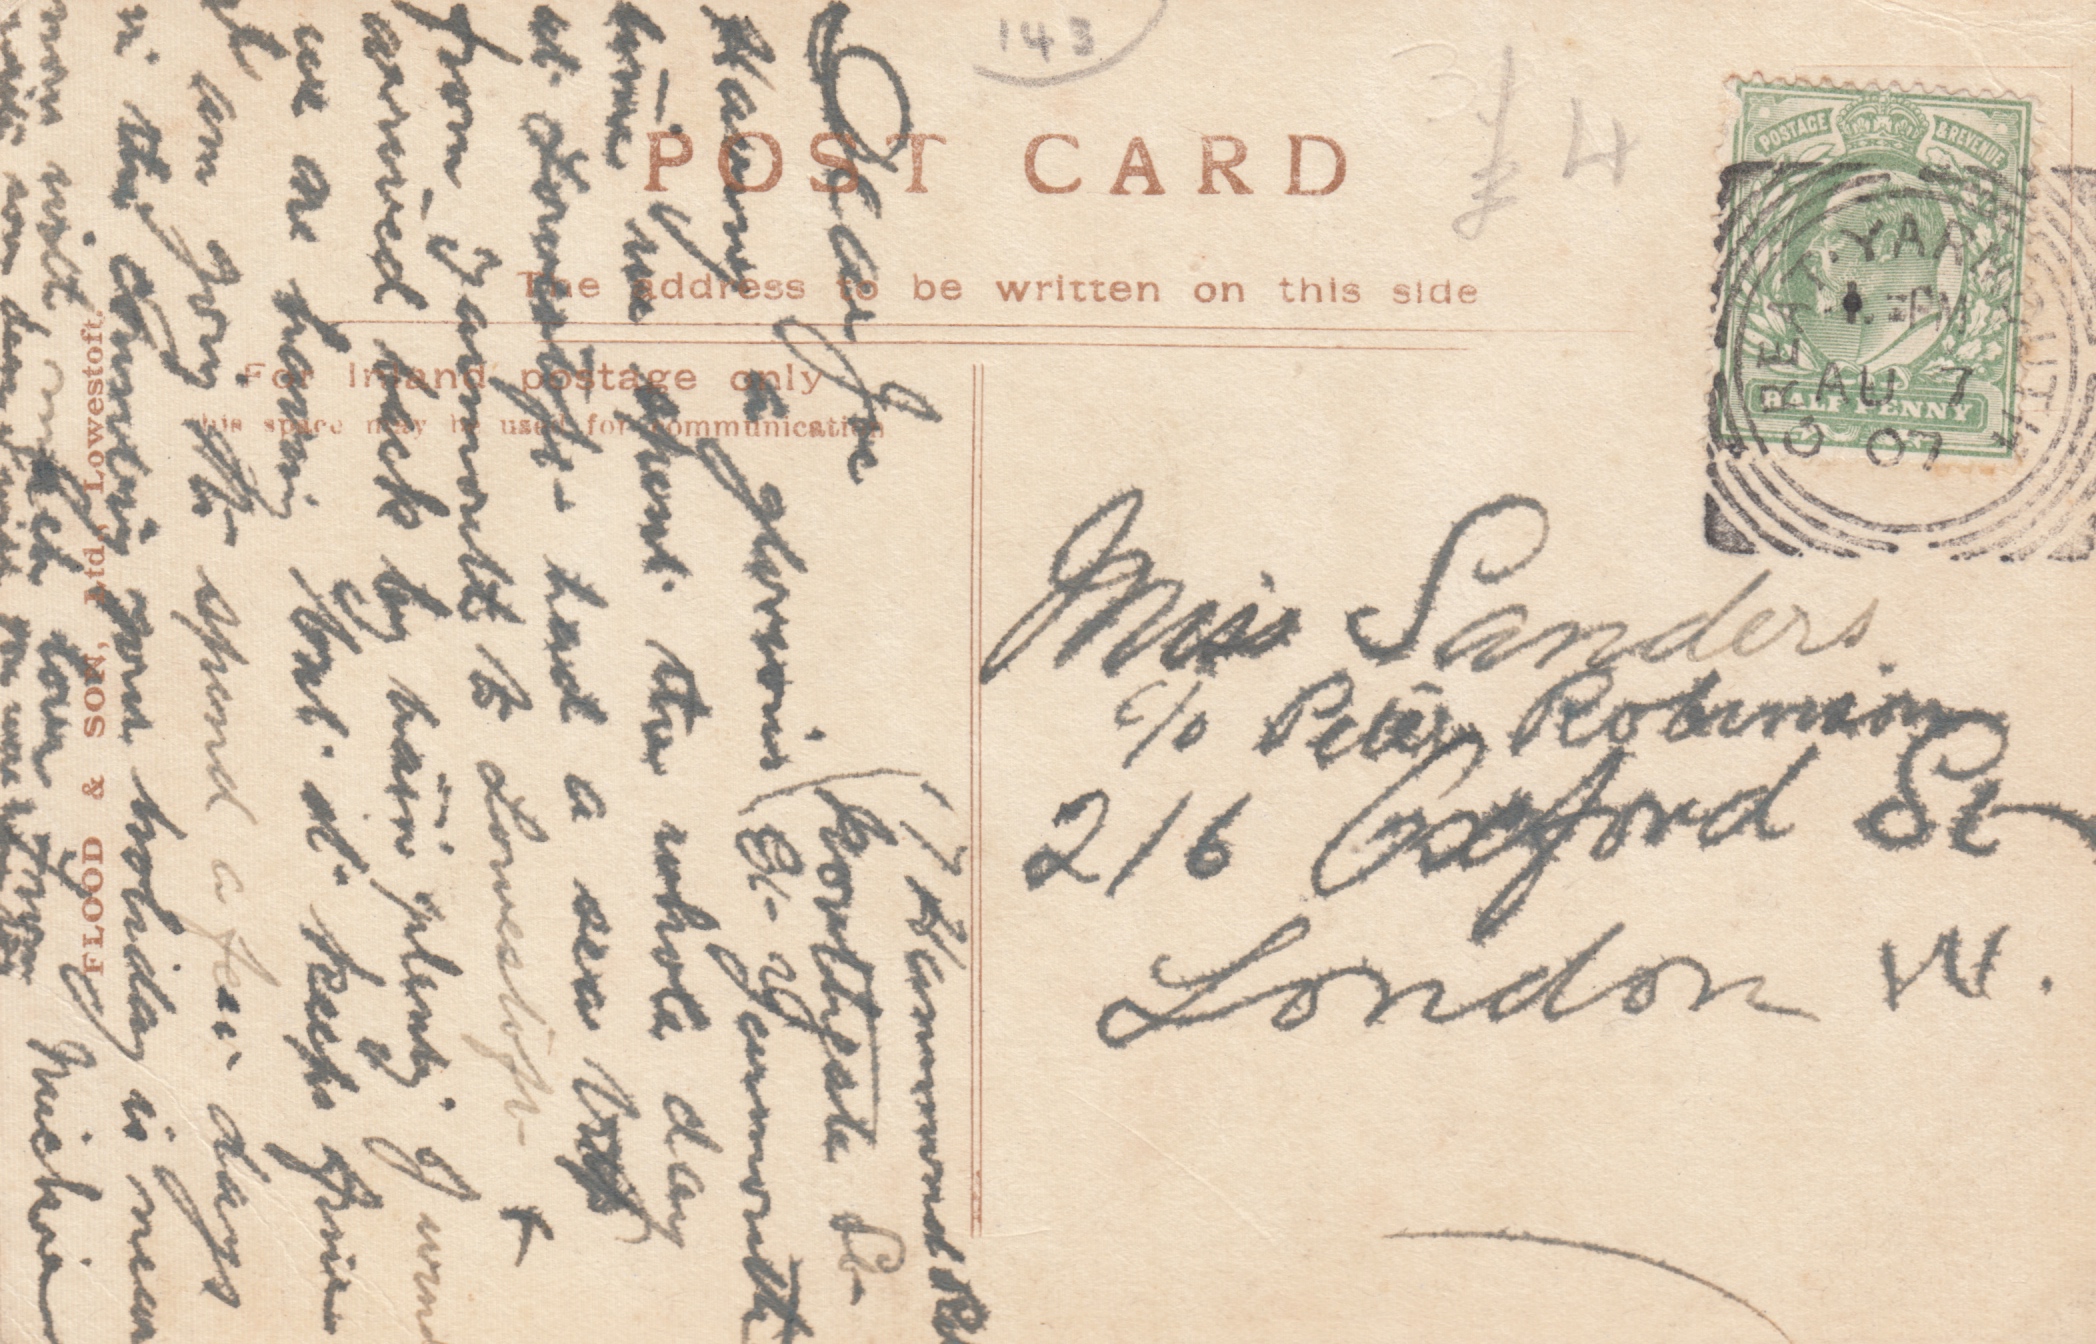 143
£4
POST CARD
The address to be written on this side
For Inland postage only
this space may be used for communication
FLOOD & SON, Ltd., Lowestoft.
POSTAGE & REVENUE
HALF PENNY
GREAT YARMOUTH
PM
AU 7
07
Miss Sanders.
c/o Peter Robinson
216 Oxford St
London W.
7 Hammond Rd
Northgate St
Gt. Yarmouth
Dear Joe
Having a glorious
time, we spent the whole day
at Lowestoft- had a sea trip
from Yarmouth to Lowestoft- &
arrived back by train, plenty of wind
we are having but it keeps fine
I am going to spend a few days
in the country my holiday is near
now with much love